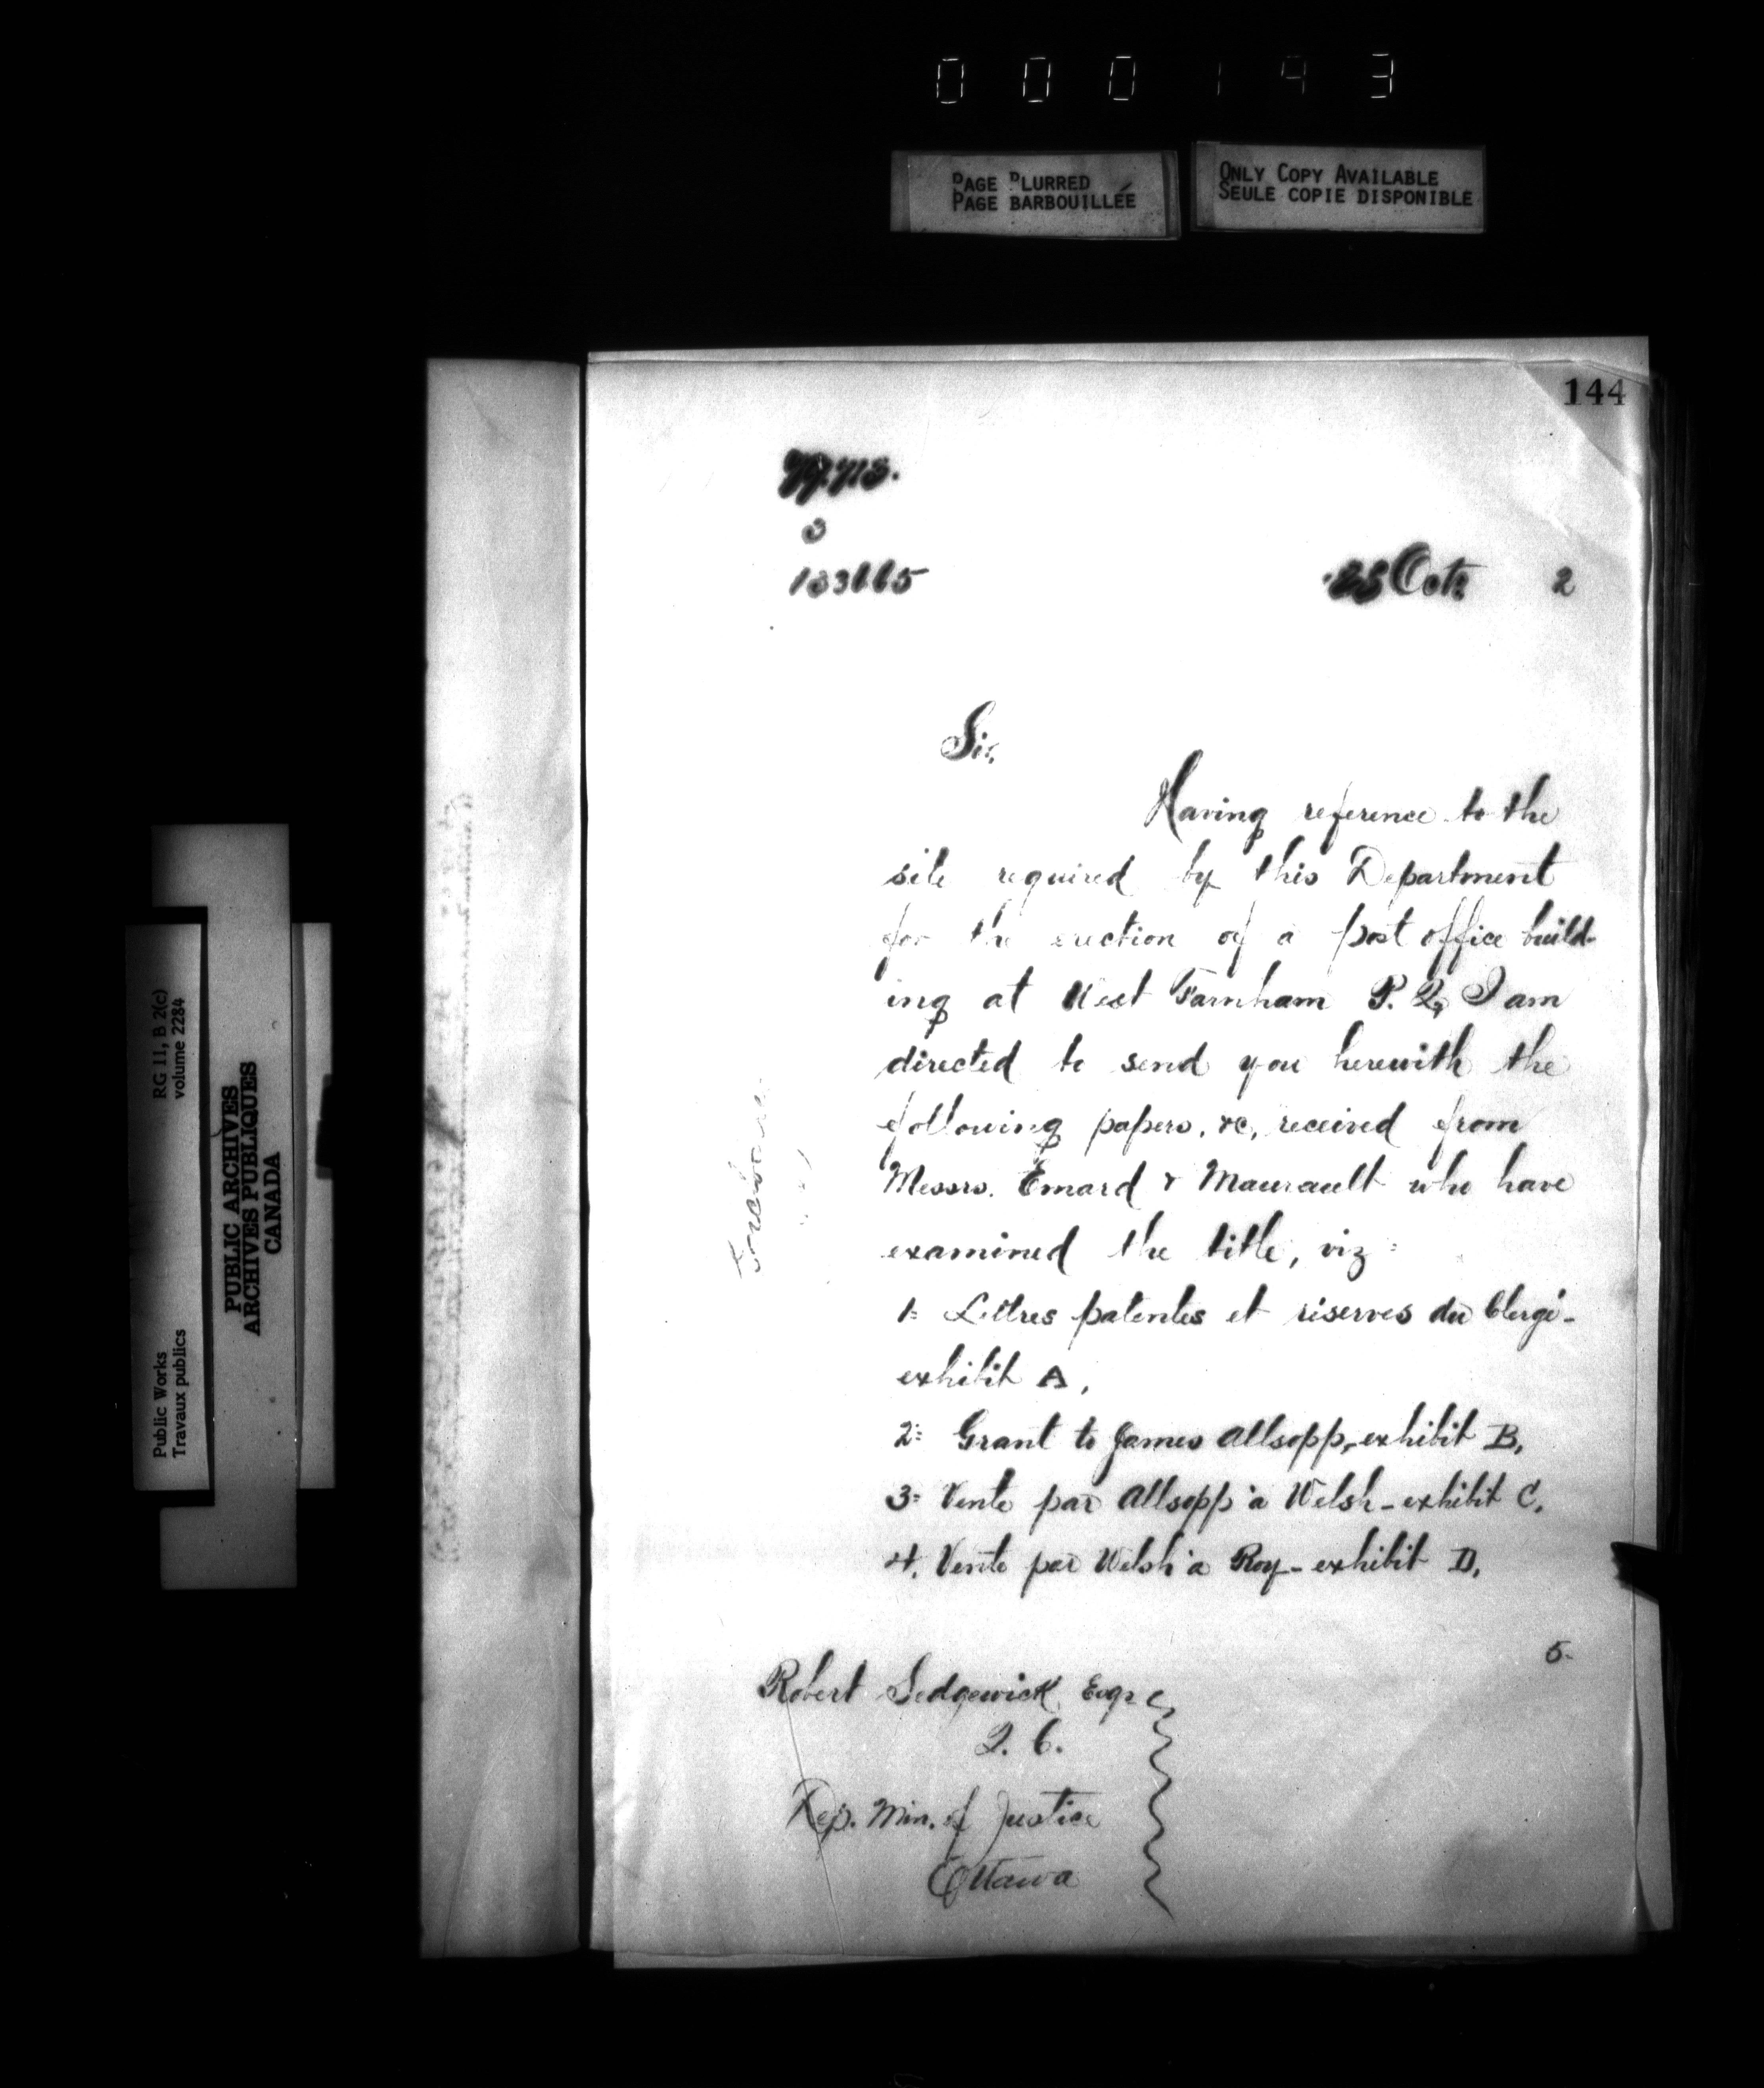 000143
PAGE BLURRED
PAGE BARBOUILLÉE
ONLY COPY AVAILABLE
SEULE COPIE DISPONIBLE
144
Octr 2
Sir,
Having reference to the
site required by this Department
for the erection of a post office build-
ing at West Farnham P. Q, I am
directed to send you herewith the
following papers, &c, received from
Messrs. Emard & Maurault who have
examined the title, viz:
1= Lettres patentes et réserves du Clergé-
exhibit A,
2= Grant to James Allsopp, exhibit B,
3= Vente par Allsopp à Welsh - exhibit C,
4. Vente par Welsh à Roy - exhibit D,
5.
Robert Sedgewick Esqre
Q. C.
Dep. Min. of Justice
Ottawa
Public Works
Travaux publics
RG 11, B 2(c)
volume 2284
PUBLIC ARCHIVES
ARCHIVES PUBLIQUES
CANADA